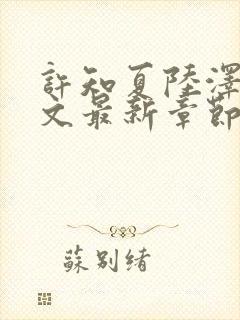 許知夏陸澤
文最新章節
蘇別緒